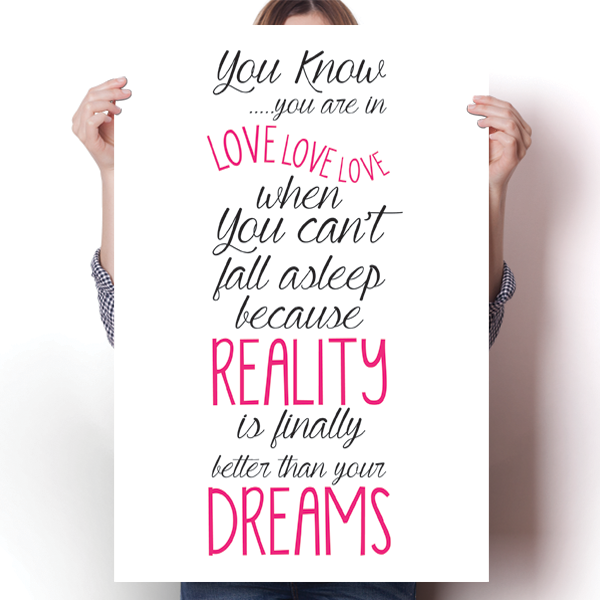 You Know
.....you are in
LOVE LOVE LOVE
when
You can't
fall asleep
because
REALITY
is finally
better than your
DREAMS